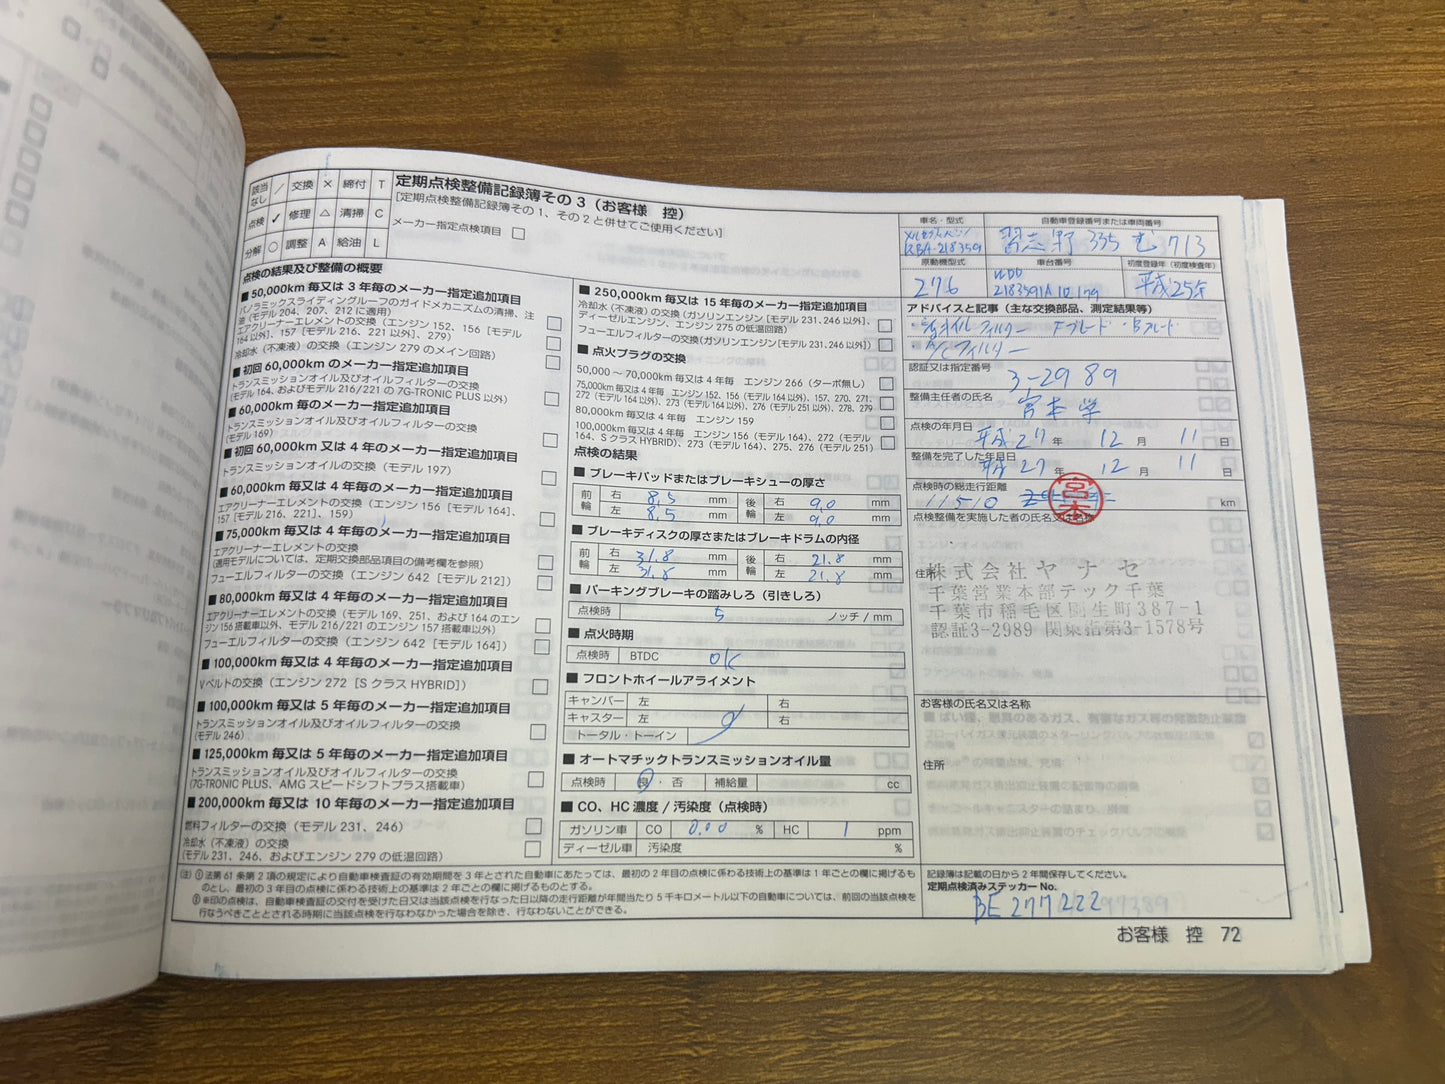 該当なし ／ 交換 × 締付 T
点検 ✓ 修理 △ 清掃 C
分解 ○ 調整 A 給油 L
定期点検整備記録簿その3（お客様 控）
[定期点検整備記録簿その1、その2と併せてご使用ください]
メーカー指定点検項目 □
点検の結果及び整備の概要
■ 50,000km 毎又は 3 年毎のメーカー指定追加項目
パノラミックスライディングルーフのガイドメカニズムの清掃、注
油（モデル 204、207、212 に適用）
エアクリーナーエレメントの交換（エンジン 152、156［モデル
164 以外］、157［モデル 216、221 以外］、279）
冷却水（不凍液）の交換（エンジン 279 のメイン回路）
■ 初回 60,000km のメーカー指定追加項目
トランスミッションオイル及びオイルフィルターの交換
（モデル 164、およびモデル 216/221 の 7G-TRONIC PLUS 以外）
■ 60,000km 毎のメーカー指定追加項目
トランスミッションオイル及びオイルフィルターの交換
（モデル 169）
■ 初回 60,000km 又は 4 年毎のメーカー指定追加項目
トランスミッションオイルの交換（モデル 197）
■ 60,000km 毎又は 4 年毎のメーカー指定追加項目
エアクリーナーエレメントの交換（エンジン 156［モデル 164］、
157［モデル 216、221］、159）
■ 75,000km 毎又は 4 年毎のメーカー指定追加項目
エアクリーナーエレメントの交換
（適用モデルについては、定期交換部品項目の備考欄を参照）
フューエルフィルターの交換（エンジン 642［モデル 212］）
■ 80,000km 毎又は 4 年毎のメーカー指定追加項目
エアクリーナーエレメントの交換（モデル 169、251、および 164 のエン
ジン156 搭載車以外、モデル 216/221 のエンジン 157 搭載車以外）
フューエルフィルターの交換（エンジン 642［モデル 164］）
■ 100,000km 毎又は 4 年毎のメーカー指定追加項目
Vベルトの交換（エンジン 272［S クラス HYBRID］）
■ 100,000km 毎又は 5 年毎のメーカー指定追加項目
トランスミッションオイル及びオイルフィルターの交換
（モデル 246）
■ 125,000km 毎又は 5 年毎のメーカー指定追加項目
トランスミッションオイル及びオイルフィルターの交換
（7G-TRONIC PLUS、AMG スピードシフトプラス搭載車）
■ 200,000km 毎又は 10 年毎のメーカー指定追加項目
燃料フィルターの交換（モデル 231、246）
冷却水（不凍液）の交換
（モデル 231、246、およびエンジン 279 の低温回路）
■ 250,000km 毎又は 15 年毎のメーカー指定追加項目
冷却水（不凍液）の交換（ガソリンエンジン［モデル 231、246 以外］、
ディーゼルエンジン、エンジン 275 の低温回路）
フューエルフィルターの交換（ガソリンエンジン［モデル 231、246 以外］）
■ 点火プラグの交換
50,000 〜 70,000km 毎又は 4 年毎 エンジン 266（ターボ無し）
75,000km 毎又は 4 年毎 エンジン 152、156（モデル 164 以外）、157、270、271、
272（モデル 164 以外）、273（モデル 164 以外）、276（モデル 251 以外）、278、279
80,000km 毎又は 4 年毎 エンジン 159
100,000km 毎又は 4 年毎 エンジン 156（モデル 164）、272（モデル
164、S クラス HYBRID）、273（モデル 164）、275、276（モデル 251）
点検の結果
■ ブレーキパッドまたはブレーキシューの厚さ
前輪 右 8.5 mm 後輪 右 9.0 mm
左 8.5 mm 左 9.0 mm
■ ブレーキディスクの厚さまたはブレーキドラムの内径
前輪 右 31.8 mm 後輪 右 21.8 mm
左 31.8 mm 左 21.8 mm
■ パーキングブレーキの踏みしろ（引きしろ）
点検時 5 ノッチ / mm
■ 点火時期
点検時 BTDC OK
■ フロントホイールアライメント
キャンバー 左 右
キャスター 左 右
トータル・トーイン
■ オートマチックトランスミッションオイル量
点検時 良 ・ 否 補給量 cc
■ CO、HC 濃度 / 汚染度（点検時）
ガソリン車 CO 0.00 % HC 1 ppm
ディーゼル車 汚染度 %
車名・型式 自動車登録番号または車両番号
RBA-218359 習志野 335 む 713
原動機型式 車台番号 初度登録年（初度検査年）
276 WDD 2183591A 平成25年
アドバイスと記事（主な交換部品、測定結果等）
オイル フィルター Fブレード ・Bブレード
A/Cフィルター
認証又は指定番号
3-2989
整備主任者の氏名
宮本 学
点検の年月日
平成 27 年 12 月 11 日
整備を完了した年月日
平成 27 年 12 月 11 日
点検時の総走行距離
11510 km
宮本
点検整備を実施した者の氏名又は名称
住所
株式会社ヤナセ
千葉営業本部テック千葉
千葉市稲毛区園生町387-1
認証3-2989 関東指第3-1578号
お客様の氏名又は名称
住所
（注）① 法第 61 条第 2 項の規定により自動車検査証の有効期間を 3 年とされた自動車にあたっては、最初の 2 年目の点検に係わる技術上の基準は 1 年ごとの欄に掲げるも
のとし、最初の 3 年目の点検に係わる技術上の基準は 2 年ごとの欄に掲げるものとする。
② ※印の点検は、自動車検査証の交付を受けた日又は当該点検を行なった日以降の走行距離が年間当たり 5 千キロメートル以下の自動車については、前回の当該点検を
行なうべきこととされる時期に当該点検を行なわなかった場合を除き、行なわないことができる。
記録簿は記載の日から 2 年間保存してください。
定期点検済みステッカー No.
BE 277222
お客様 控 72